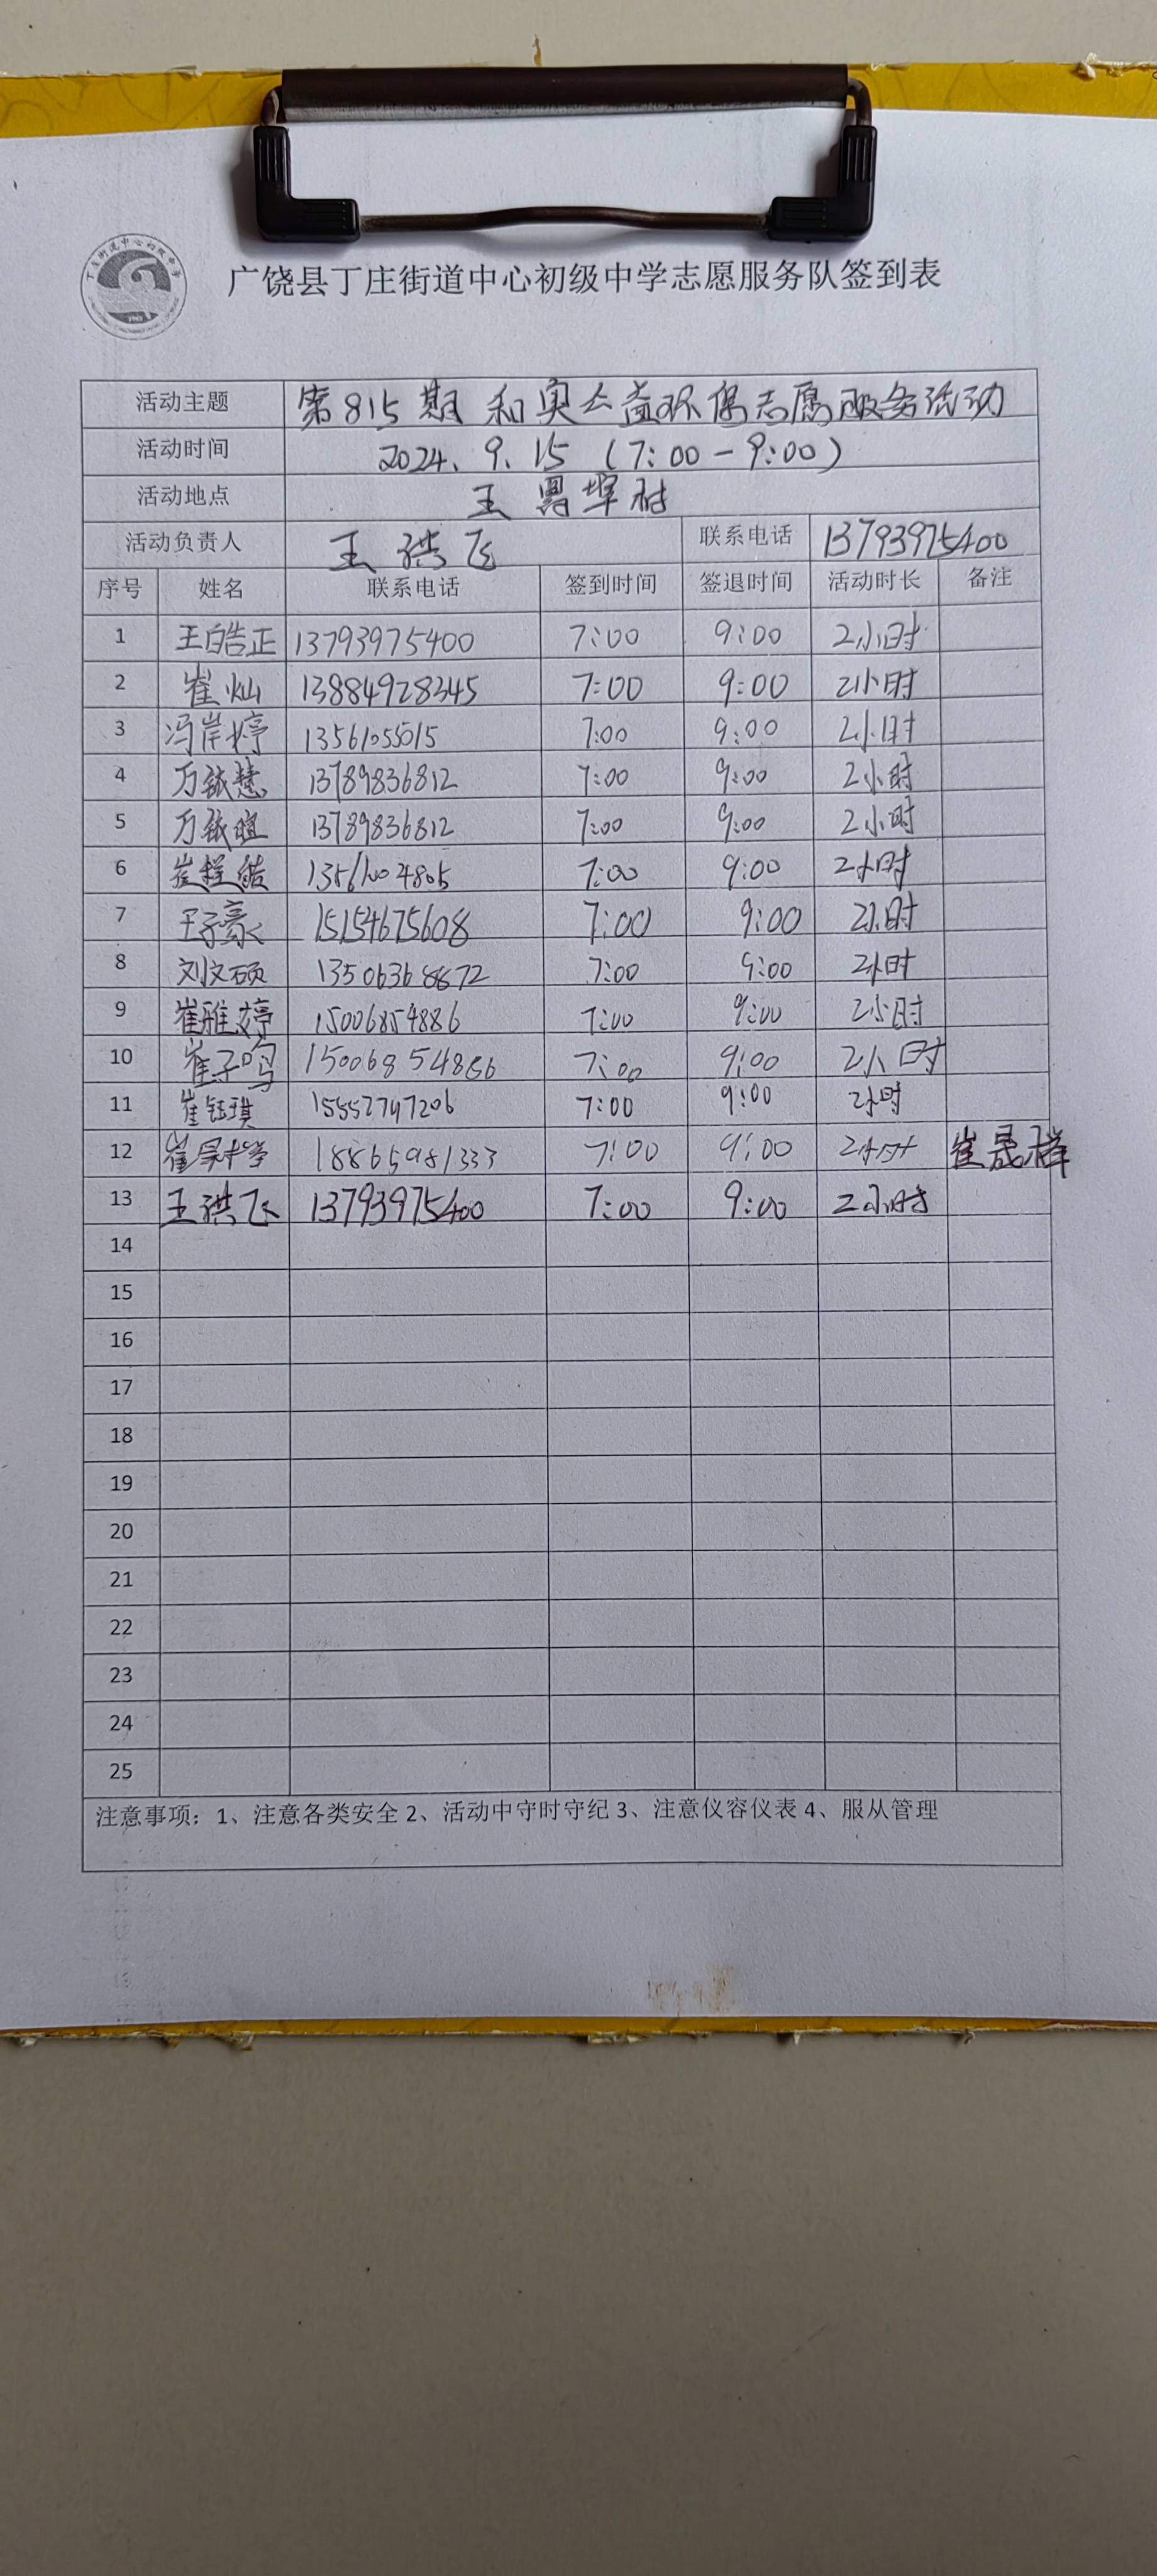 广饶县丁庄街道中心初级中学志愿服务队签到表
活动主题 第815期 和奥公益环保志愿服务活动
活动时间 2024.9.15 (7:00-9:00)
活动地点 王署埠村
活动负责人 王洪飞 联系电话 13793975400
序号 姓名 联系电话 签到时间 签退时间 活动时长 备注
1 王皓正 13793975400 7:00 9:00 2小时
2 崔灿 13884928345 7:00 9:00 2小时
3 冯岸婷 13561055015 7:00 9:00 2小时
4 万毓慧 13789836812 7:00 9:00 2小时
5 万毓暄 13789836812 7:00 9:00 2小时
6 7:00 9:00 2小时
7 王子豪 15154675608 7:00 9:00 2小时
8 刘文硕 13506368872 7:00 9:00 2小时
9 崔雅婷 15006854886 7:00 9:00 2小时
10 崔子鸣 15006854886 7:00 9:00 2小时
11 崔钰琪 15552747206 7:00 9:00 2小时
12 18865981333 7:00 9:00 2小时 崔晟祥
13 王洪飞 13793975400 7:00 9:00 2小时
14
15
16
17
18
19
20
21
22
23
24
25
注意事项：1、注意各类安全 2、活动中守时守纪 3、注意仪容仪表 4、服从管理